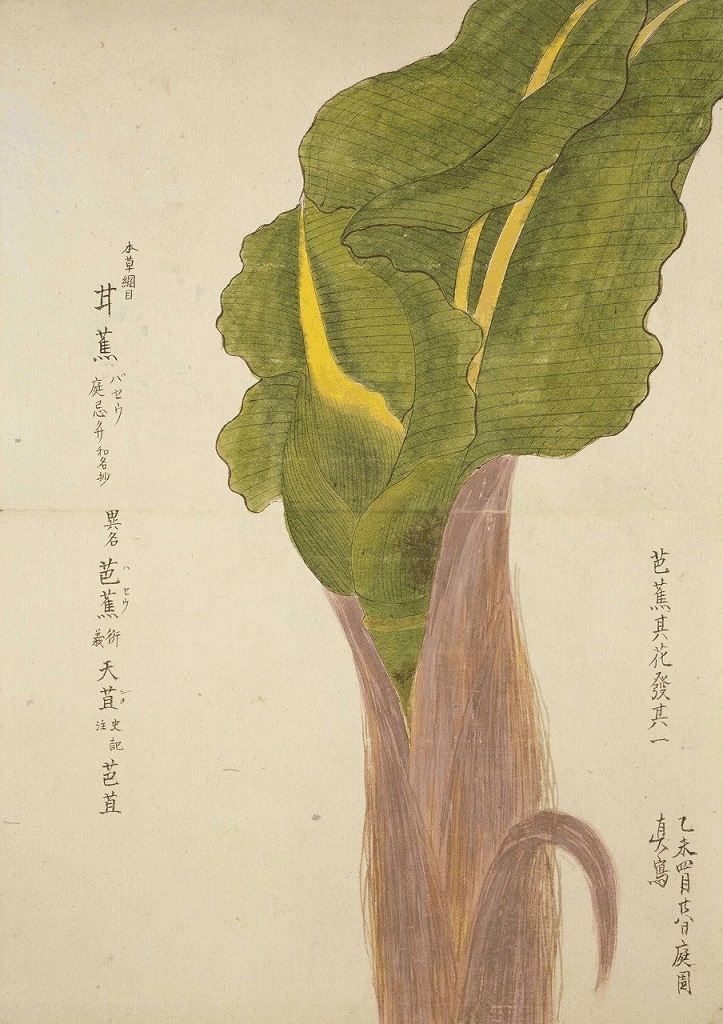 芭蕉其花發其一
乙未四月廿八日庭園
真寫
本草綱目
甘蕉
バセウ
庭忌弁和名抄
異名
芭蕉
ハセウ
衍義
天苴
ショ
史記注
芭苴